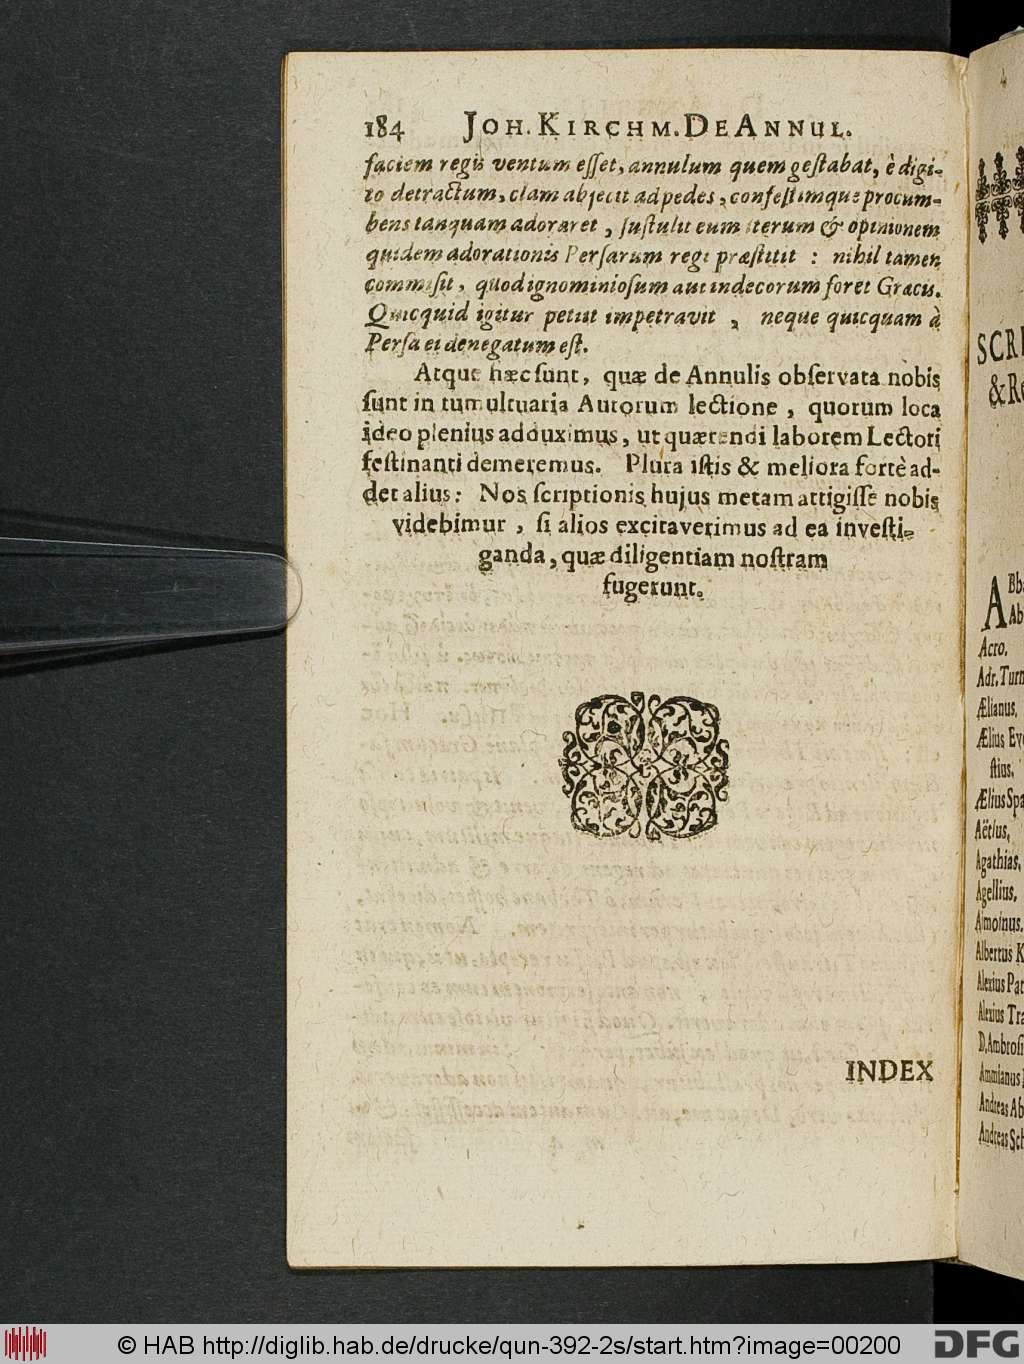 184 JOH. KIRCHM. DE ANNUL.
faciem regis ventum esset, annulum quem gestabat, è digi-
to detractum, clam abjecit ad pedes, confestimque procum-
bens tanquam adoraret, sustulit eum iterum & opinionem
quidem adorationis Persarum regi præstitit: nihil tamen
commisit, quod ignominiosum aut indecorum foret Græcis.
Quicquid igitur petiit impetravit, neque quicquam à
Persa ei denegatum est.
Atque hæc sunt, quæ de Annulis observata nobis
sunt in tumultuaria Autorum lectione, quorum loca
ideo plenius adduximus, ut quærendi laborem Lectori
festinanti demeremus. Plura istis & meliora fortè ad-
det alius: Nos scriptionis hujus metam attigisse nobis
videbimur, si alios excitaverimus ad ea investi-
ganda, quæ diligentiam nostram
fugerunt.
INDEX
SCRI
& Re
Abb
Ab
Acro.
Adr. Turn
Ælianus.
Ælius Ev
stius.
Ælius Spa
Aëtius.
Agathias.
Agellius.
Aimoinus.
Albertus K
Alexius Pat
Alexius Tra
D. Ambrosi
Ammianus
Andreas Ab
Andreas Sch
© HAB http://diglib.hab.de/drucke/qun-392-2s/start.htm?image=00200
DFG